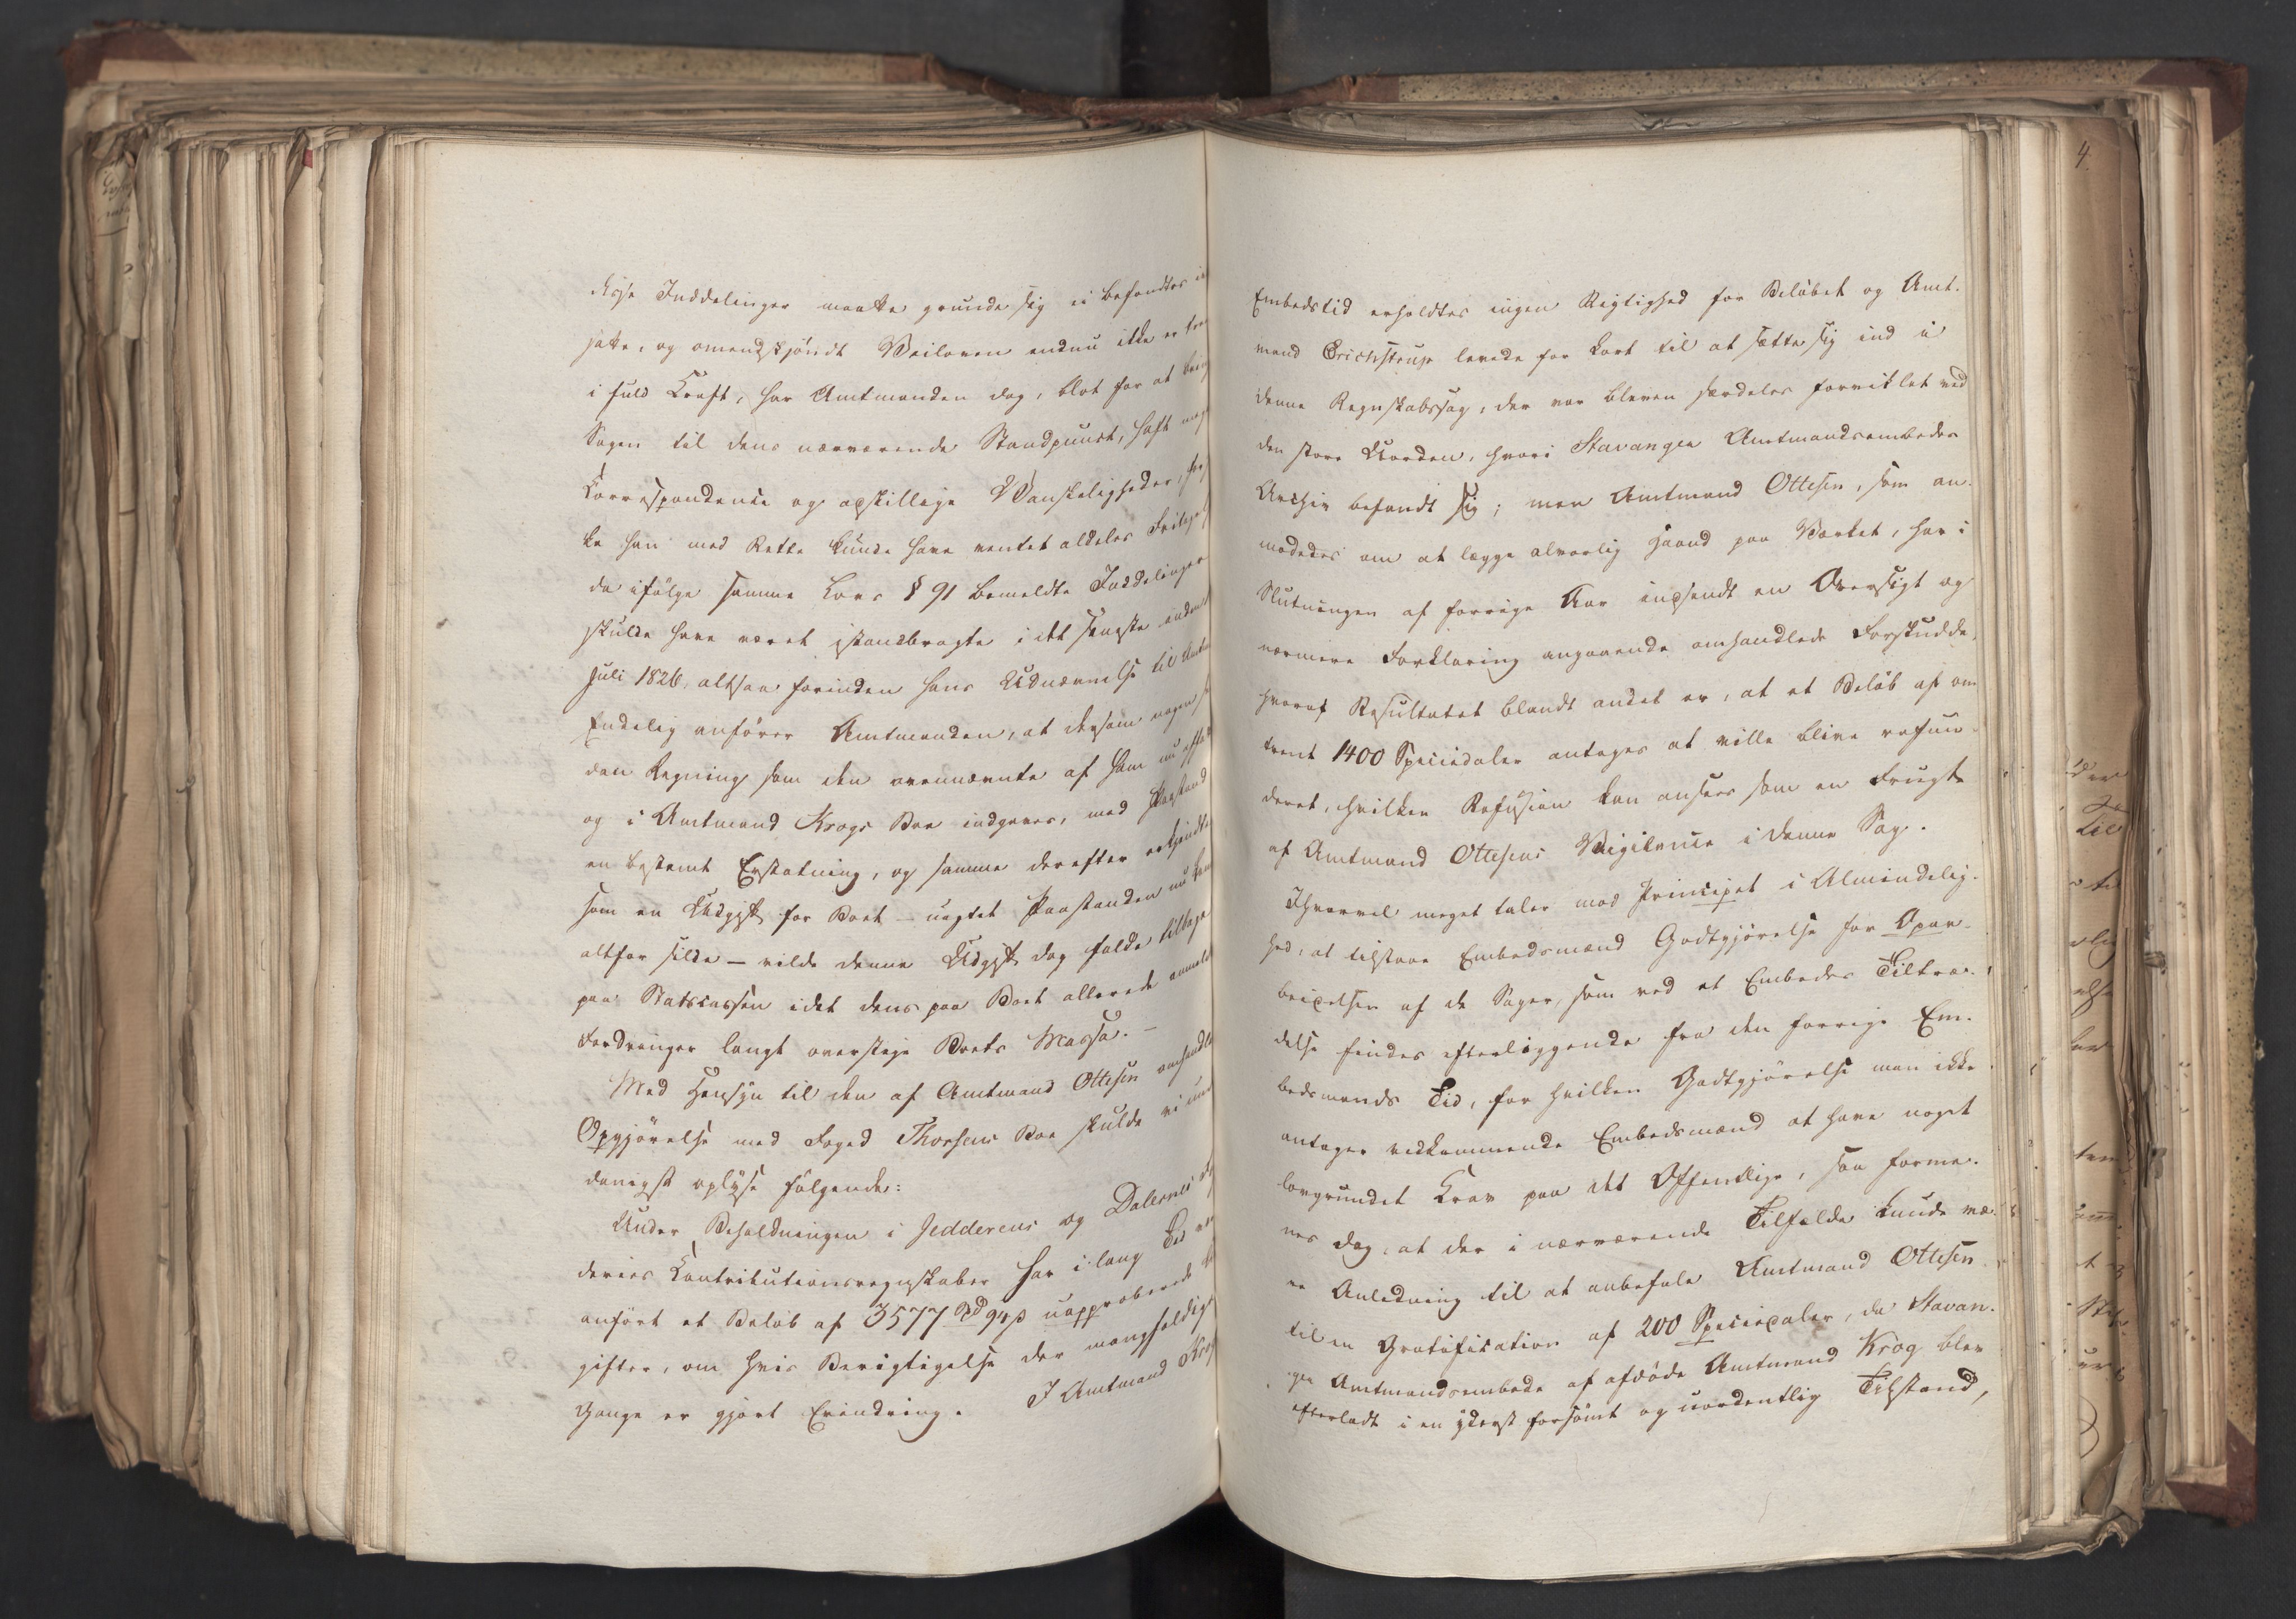 disse Inddelinger maatte grunde sig ei befandtes
satte, og omendskjöndt Veiloven endnu ikke er
i fuld Kraft, har Amtmanden dog, blot for at
Sagen til dens nærværende Standpunct, haft
Correspondence og adskillige Vanskeligheder,
ke han med Rette kunde have ventet aldeles
da ifölge samme Lovs § 91 bemeldte Inddelinger
skulde have været istandbragte i det seneste inden
Juli 1826, altsaa forinden hans Udnævnelse til
Endelig anförer Amtmanden, at dersom nogen
den Regning som den ovennævnte af ham nu
og i Amtmand Krogs Boe indgaves, med Paastand
en bestemt Erstatning, og samme derefter
som en Udgift for Boet – uagtet Paastanden nu
altfor silde – vilde denne Udgift dog falde tilbage
paa Statscassen idet dens paa Boet allerede
Fordringer langt overstige Boets Massa. –
Med Hensyn til den af Amtmand Ottesen omhandlede
Opgjörelse med Foged Thorsens Boe skulde vi
danigst oplyse fölgende:
Under Beholdningen i Jedderens og Dalernes
deries Contributionsregnskaber har i lang Tid
anfört et Belöb af 3577 uapproberede
gifter, om hvis Berigtigelse der mangfoldige
Gange er gjort Erindring. I Amtmand
Embedstid erholdtes ingen Rigtighed for Belöbet og Amt-
mand Erichstrup levede for kort til at sætte sig ind i
denne Regnskabssag, der var bleven særdeles forviklet ved
den store Uorden, hvori Stavanger Amtmandsembedes
Archiv befandt sig; men Amtmand Ottesen, som an-
modedes om at lægge alvorlig Haand paa Værket, har i
Slutningen af forrige Aar indsendt en Oversigt og
nærmere Forklaring angaaende omhandlede Forskudde,
hvoraf Resultatet blandt andet er, at et Belöb af om-
trent 1400 Speciedaler antages at ville blive refun-
deret, hvilken Refusion kan ansees som en Frugt
af Amtmand Ottesens Vigilence i denne Sag.
Ihvorvel meget taler mod Principet i Almindelig-
hed, at tilstaae Embedsmænd Godtgjörelse for Opar-
beidelsen af de Sager, som ved et Embedes Tiltræ-
delse findes efterliggende fra den forrige Em-
bedsmands Tid, for hvilken Godtgjörelse man ikke
antager vedkommende Embedsmænd at have noget
lovgrundet Krav paa det Offentlige, saa forme-
nes dog, at der i nærværende Tilfælde kunde væ-
re Anledning til at anbefale Amtmand Ottesen
til en Gratification af 200 Speciedaler, da Stavan-
ger Amtmandsembede af afdöde Amtmand Krog blev
efterladt i en yderst forsömt og uordentlig Tilstand,
4.